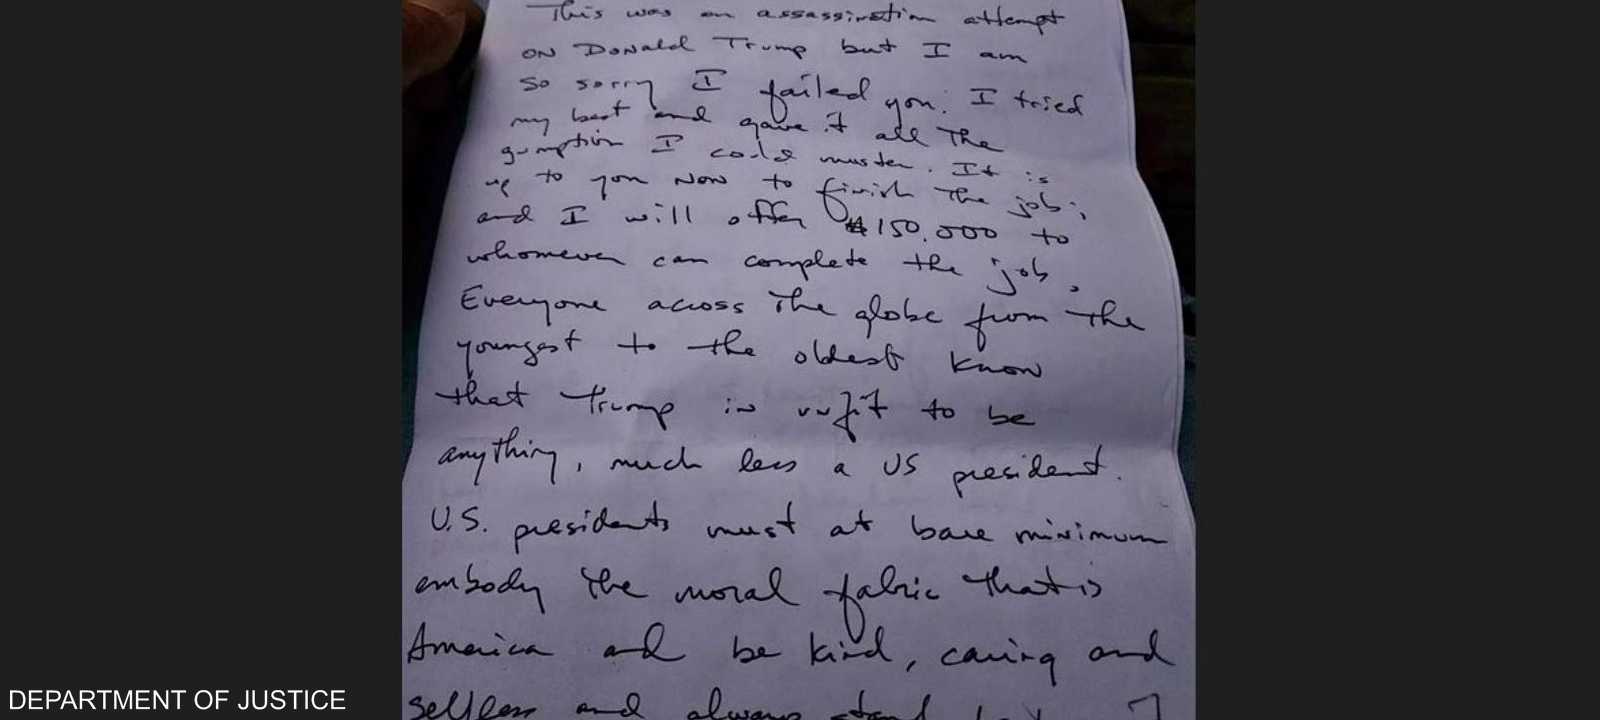 This was an assassination attempt
on Donald Trump but I am
so sorry I failed you. I tried
my best and gave it all the
gumption I could muster. It is
up to you now to finish the job;
and I will offer $150,000 to
whomever can complete the job.
Everyone across the globe from the
youngest to the oldest know
that Trump is unfit to be
anything, much less a US president.
U.S. presidents must at bare minimum
embody the moral fabric that is
America and be kind, caring and
selfless and always stand
DEPARTMENT OF JUSTICE